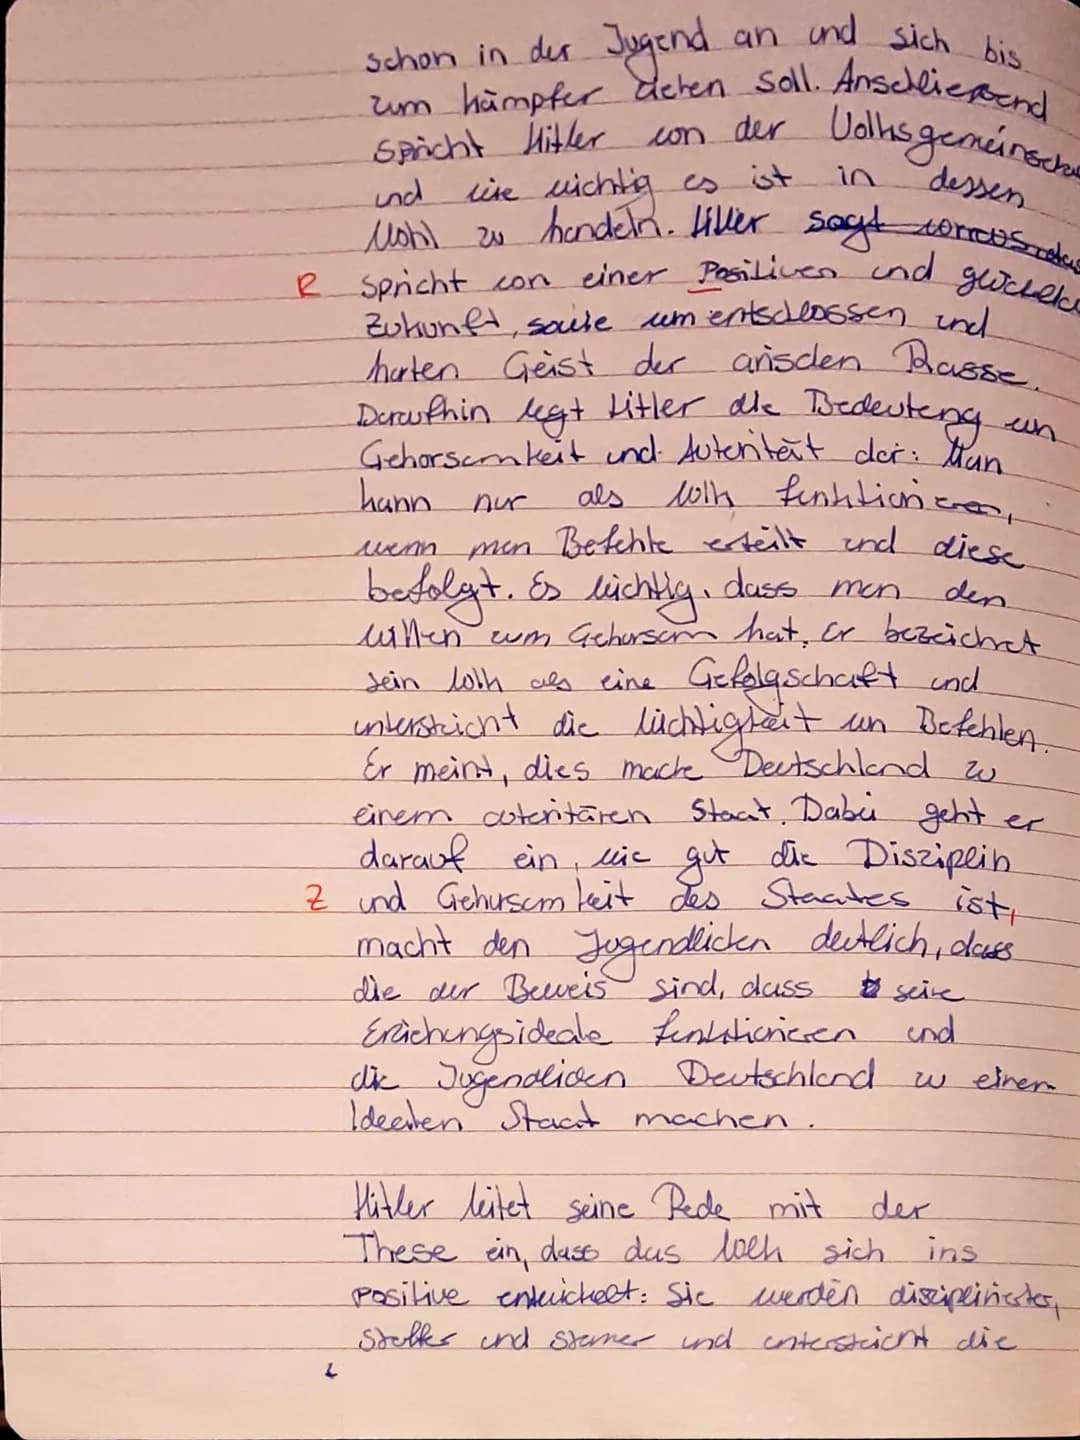 schon in der Jugend an und sich bis
zum kämpfer soll. Anschließend
spricht Hitler von der Volksgemeinscha
und wie wichtig es ist in dessen
Wohl zu handeln. Hitler sagt
R spricht von einer Positiven und glücklic
Zukunft, sowie um entschlossen und
harten Geist der arischen Rasse.
Daraufhin legt Hitler die Bedeutung un
Gehorsamkeit und Autorität dar: Man
kann nur als Volk funktionieren,
wenn man Befehle erteilt und diese
befolgt. Es wichtig, dass man den
Willen zum Gehorsam hat. Er bezeichnet
sein Volk als eine Gefolgschaft und
unterstricht die Wichtigkeit un Befehlen.
Er meint, dies mache Deutschland zu
einem autoritären Staat. Dabei geht er
darauf ein, wie gut die Disziplin
Z und Gehorsamkeit des Staates ist,
macht den Jugendlichen deutlich, dass
die der Beweis sind, dass seine
Erziehungsideale funktionieren und
die Jugendlichen Deutschland zu einem
Idealen Staat machen.
Hitler leitet seine Rede mit der
These ein, dass das Volk sich ins
positive entwickelt: Sie werden disziplinierter,
straffer und strammer und unterstricht die